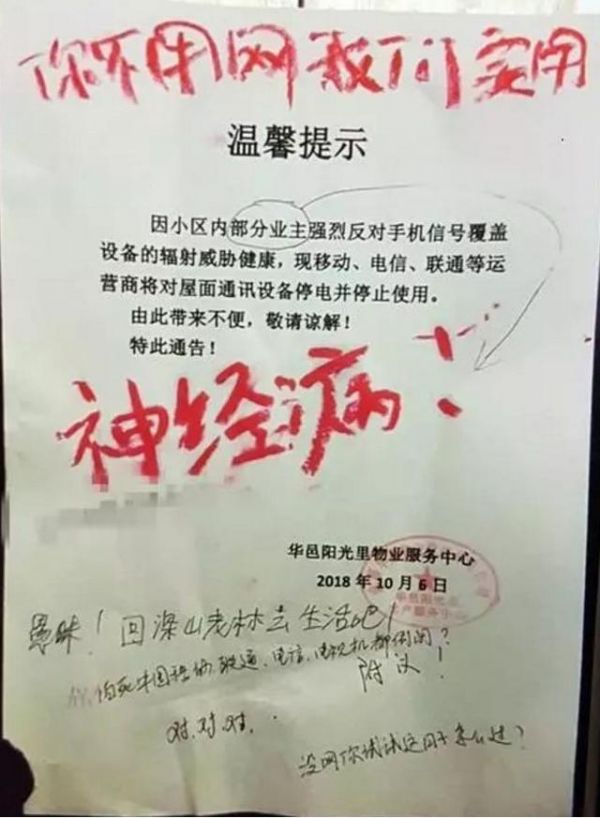 你不用网我们要用
温馨提示
因小区内部分业主强烈反对手机信号覆盖
设备的辐射威胁健康，现移动、电信、联通等运
营商将对屋面通讯设备停电并停止使用。
由此带来不便，敬请谅解！
特此通告！
神经病！
华邑阳光里物业服务中心
2018年10月6日
华邑阳光里
愚昧！回深山老林去生活吧！
怕死 联通、电信、电视机都别用？
附议！
对.对.对.
没网你试试这日子怎么过？